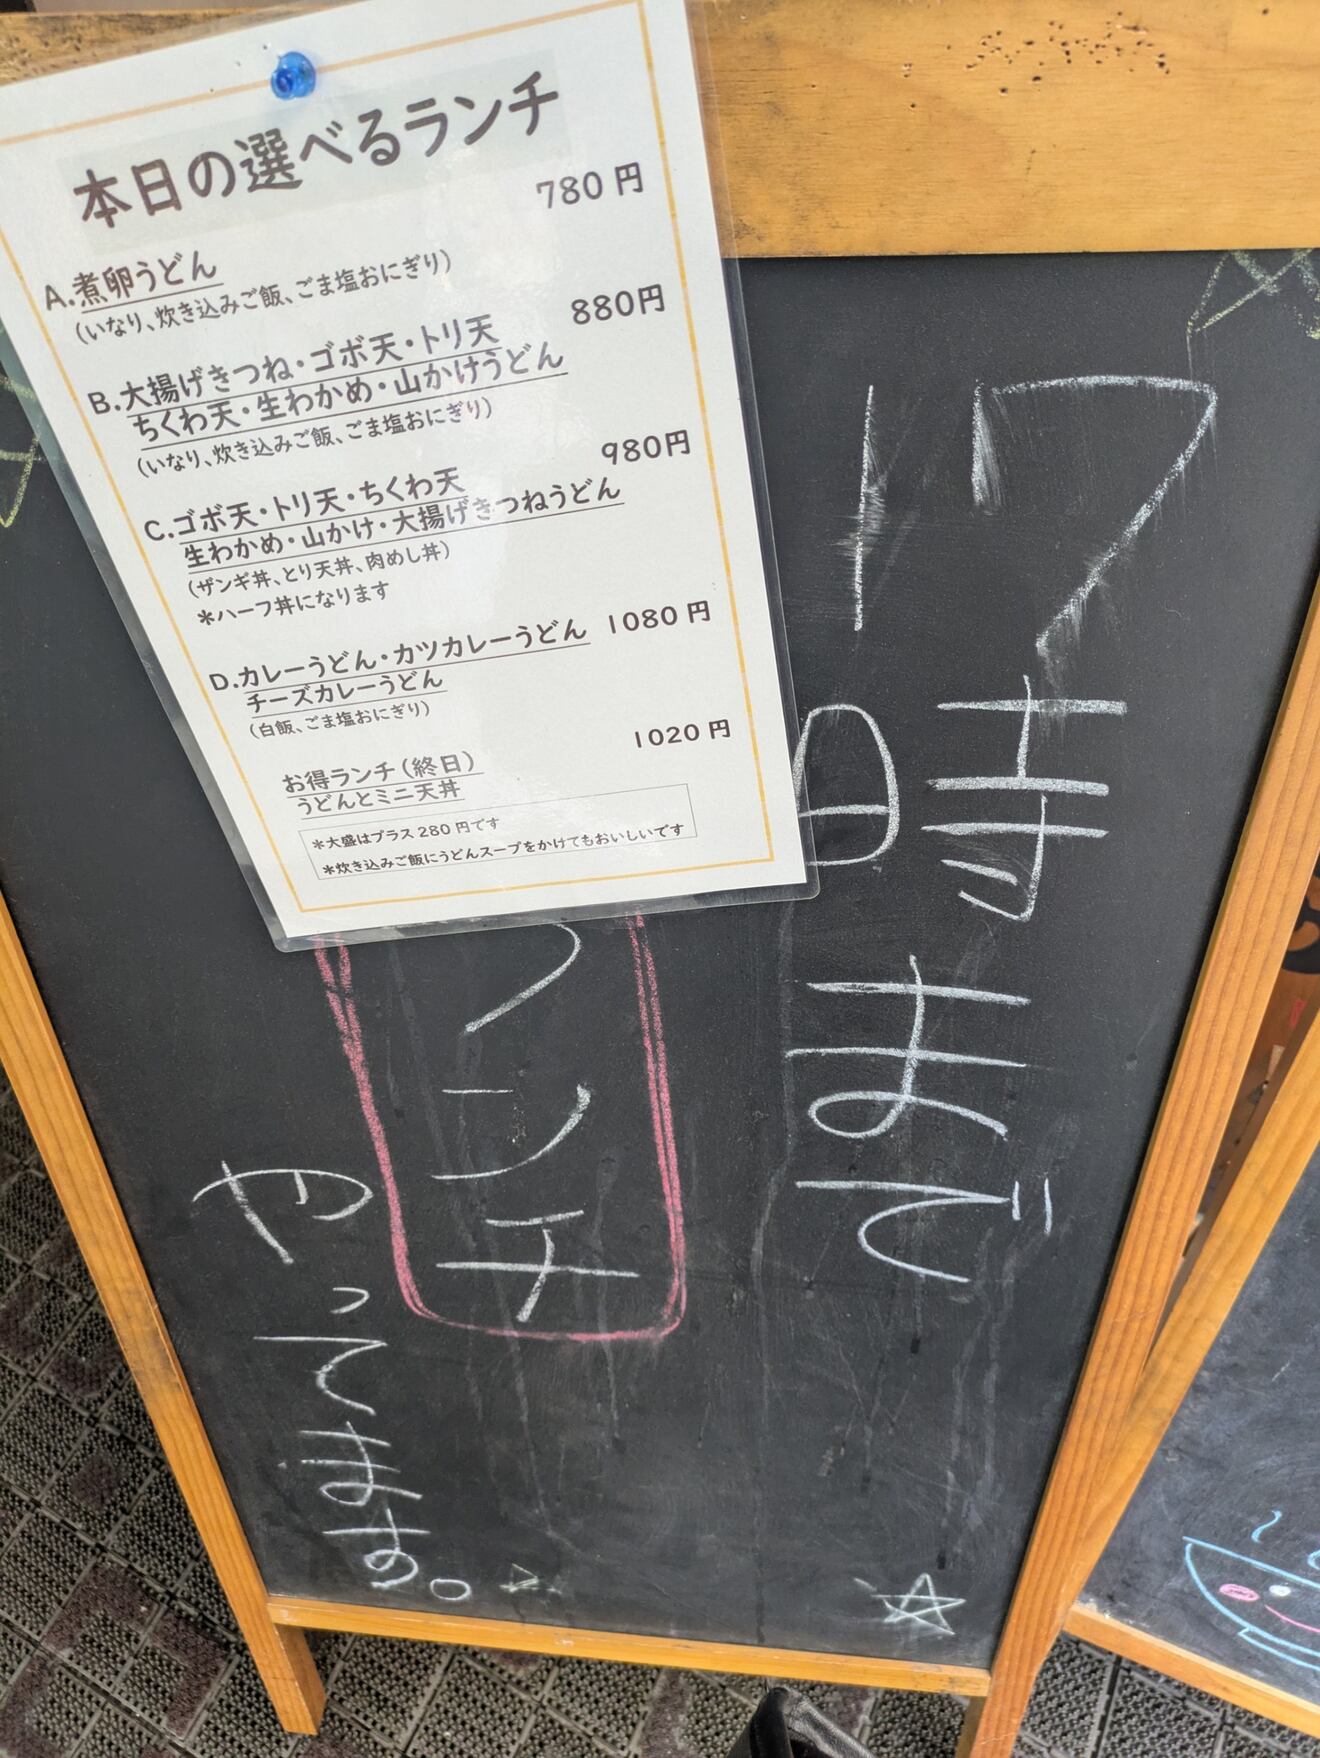 本日の選べるランチ
780円
A.煮卵うどん
(いなり、炊き込みご飯、ごま塩おにぎり)
880円
B.大揚げきつね・ゴボ天・トリ天
ちくわ天・生わかめ・山かけうどん
(いなり、炊き込みご飯、ごま塩おにぎり)
980円
C.ゴボ天・トリ天・ちくわ天
生わかめ・山かけ・大揚げきつねうどん
(ザンギ丼、とり天丼、肉めし丼)
*ハーフ丼になります
D.カレーうどん・カツカレーうどん 1080円
チーズカレーうどん
(白飯、ごま塩おにぎり)
1020円
お得ランチ(終日)
うどんとミニ天丼
*大盛はプラス280円です
*炊き込みご飯にうどんスープをかけてもおいしいです
17時まで
ランチ
やってます。